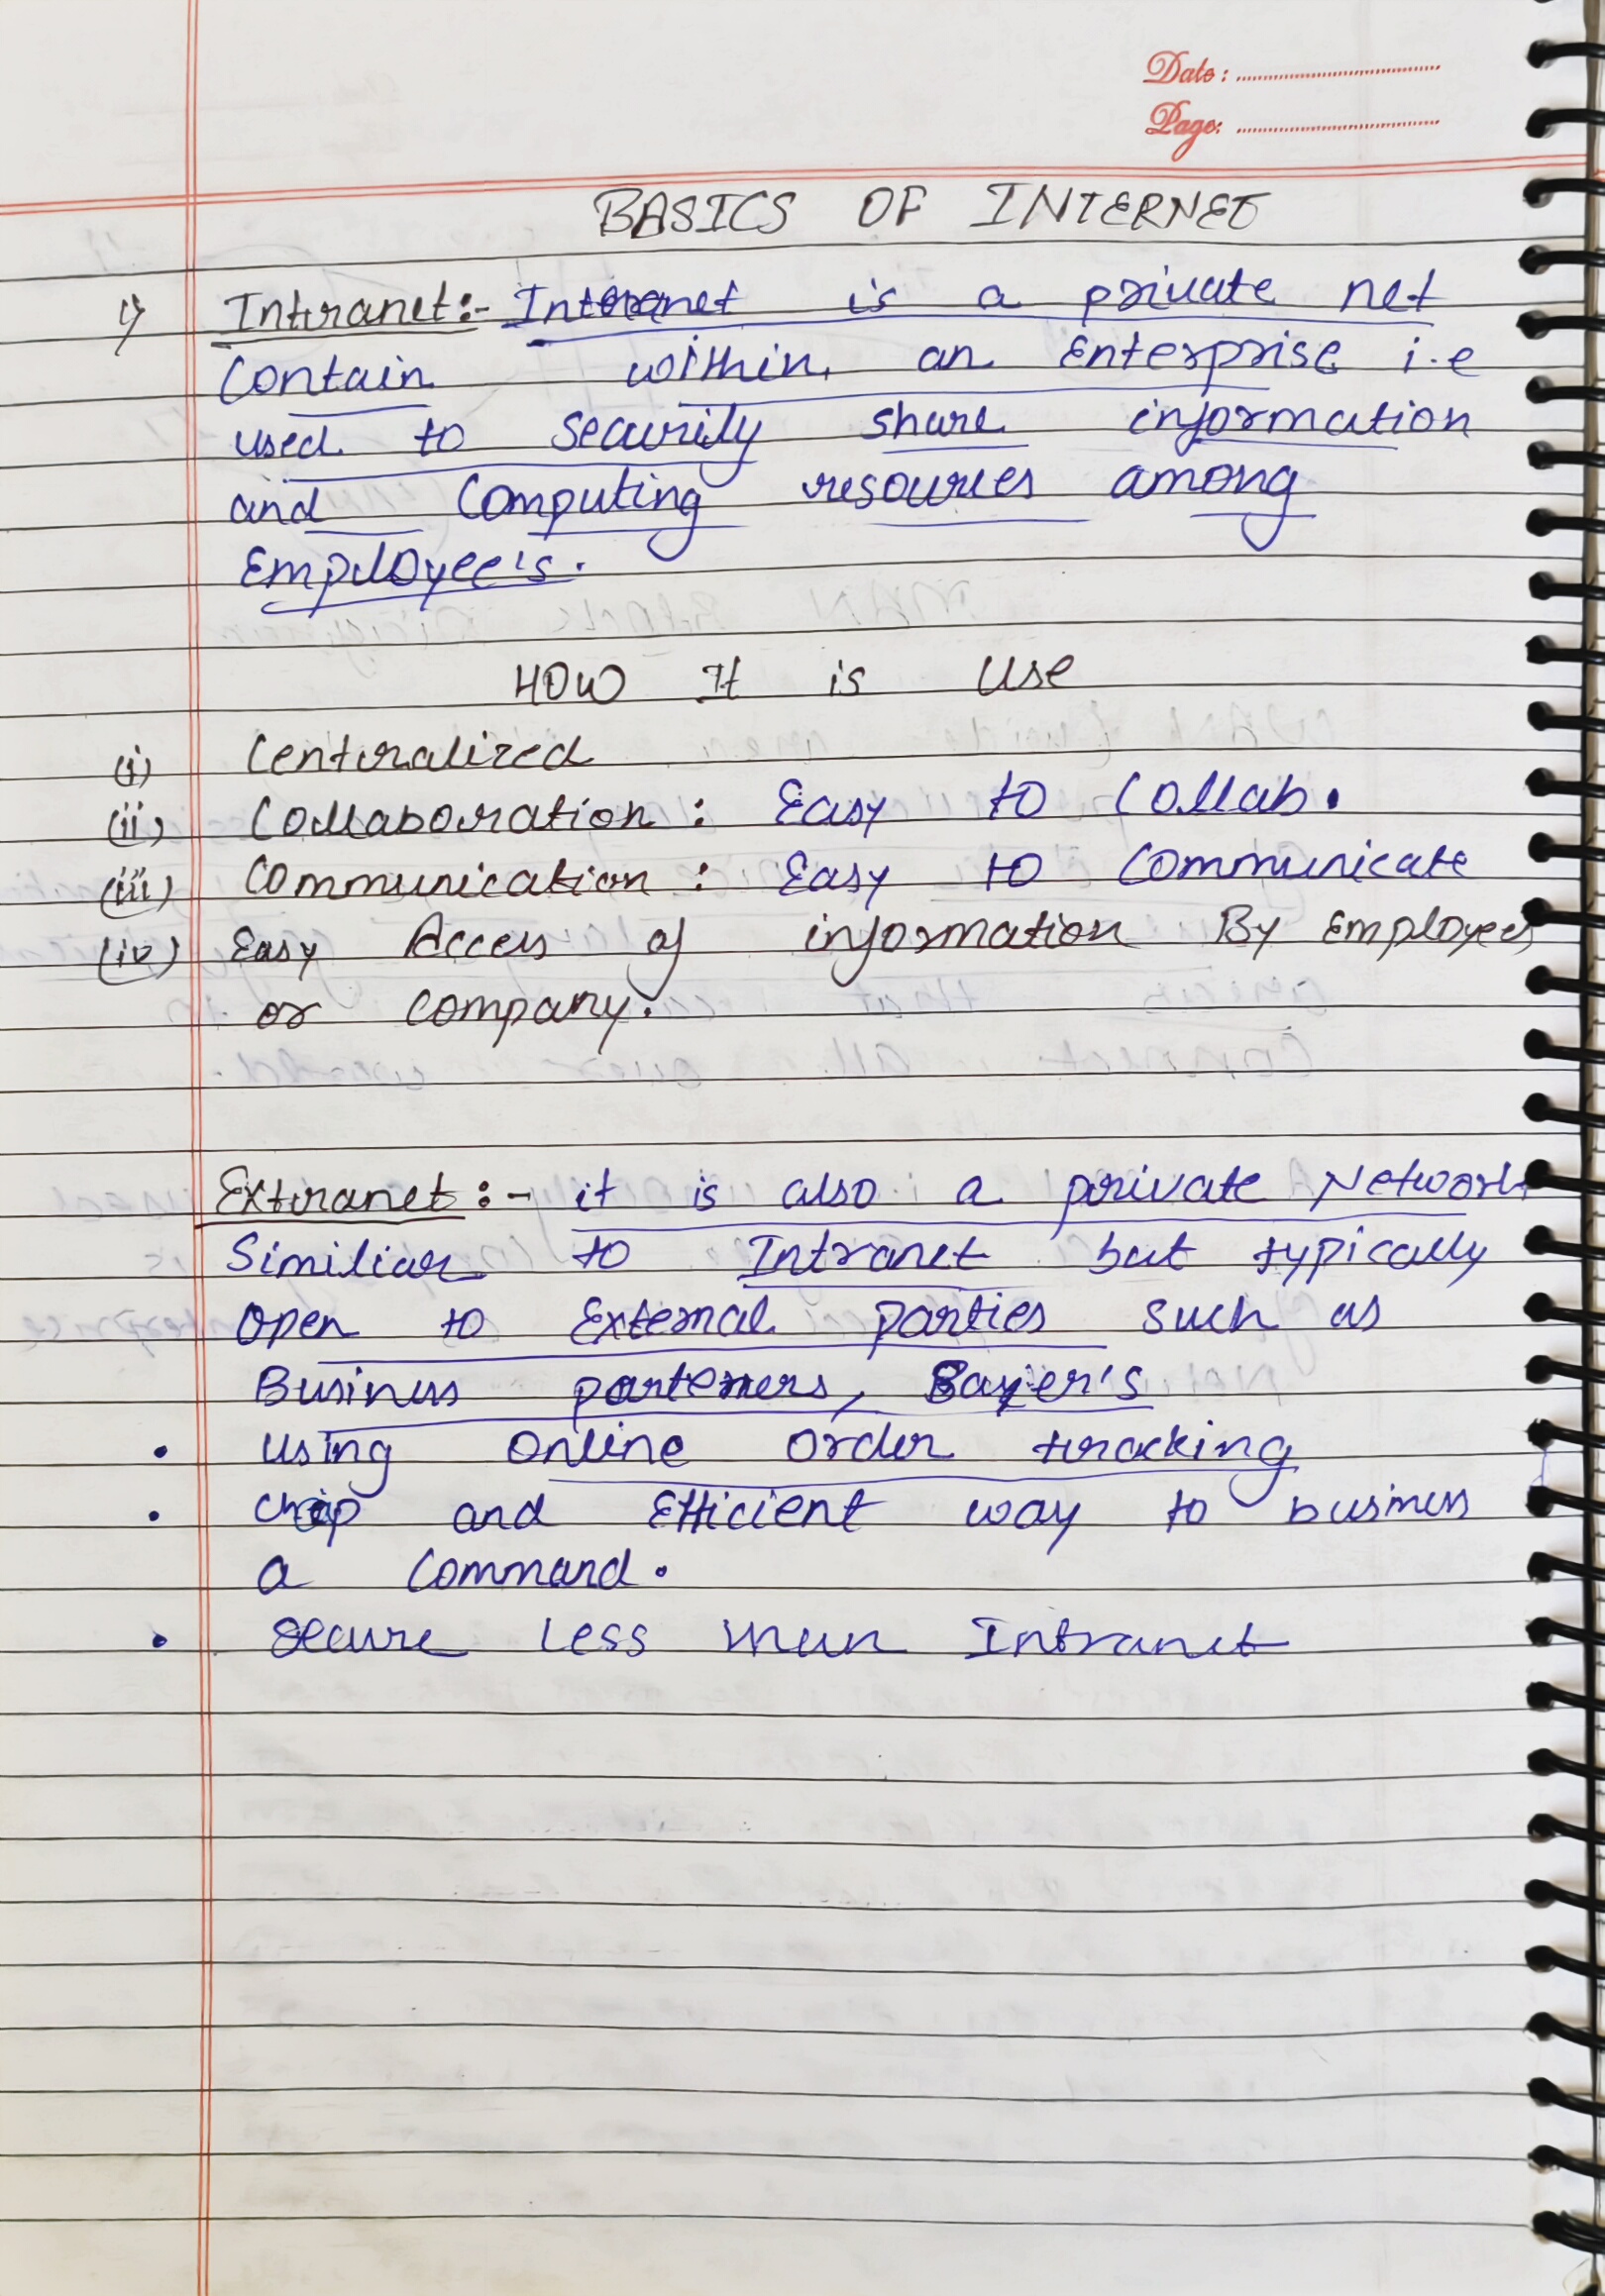 Date:
Page:
BASICS OF INTERNET
1) Intranet:- Intranet is a private net
Contain within an Enterprise i.e
used to Security share information
and Computing resources among
Employee's.
HOW It is Use
(i) Centralized
(ii) Collaboration : Easy to Collab.
(iii) Communication : Easy to Communicate
(iv) Easy Access of information By Employees
or Company.
Extranet :- it is also a private Network
Similiar to Intranet but typically
Open to External parties such as
Business parteners,
• using Online Order tracking
• and Efficient way to business
a Command.
• Secure Less then Intranet